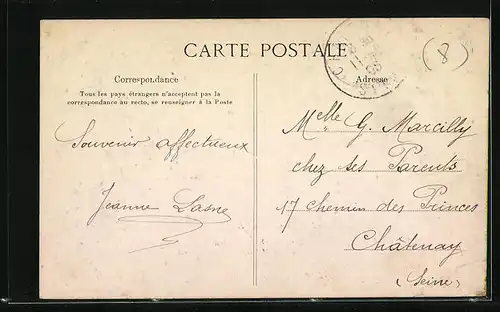 CARTE POSTALE
Correspondance
Tous les pays étrangers n'acceptent pas la
correspondance au recto, se renseigner à la Poste
Adresse
(8)
Souvenir affectueux
Jeanne Lasne
Melle G. Marcilly
chez ses Parents
17 chemin des Princes
Châtenay
(Seine)